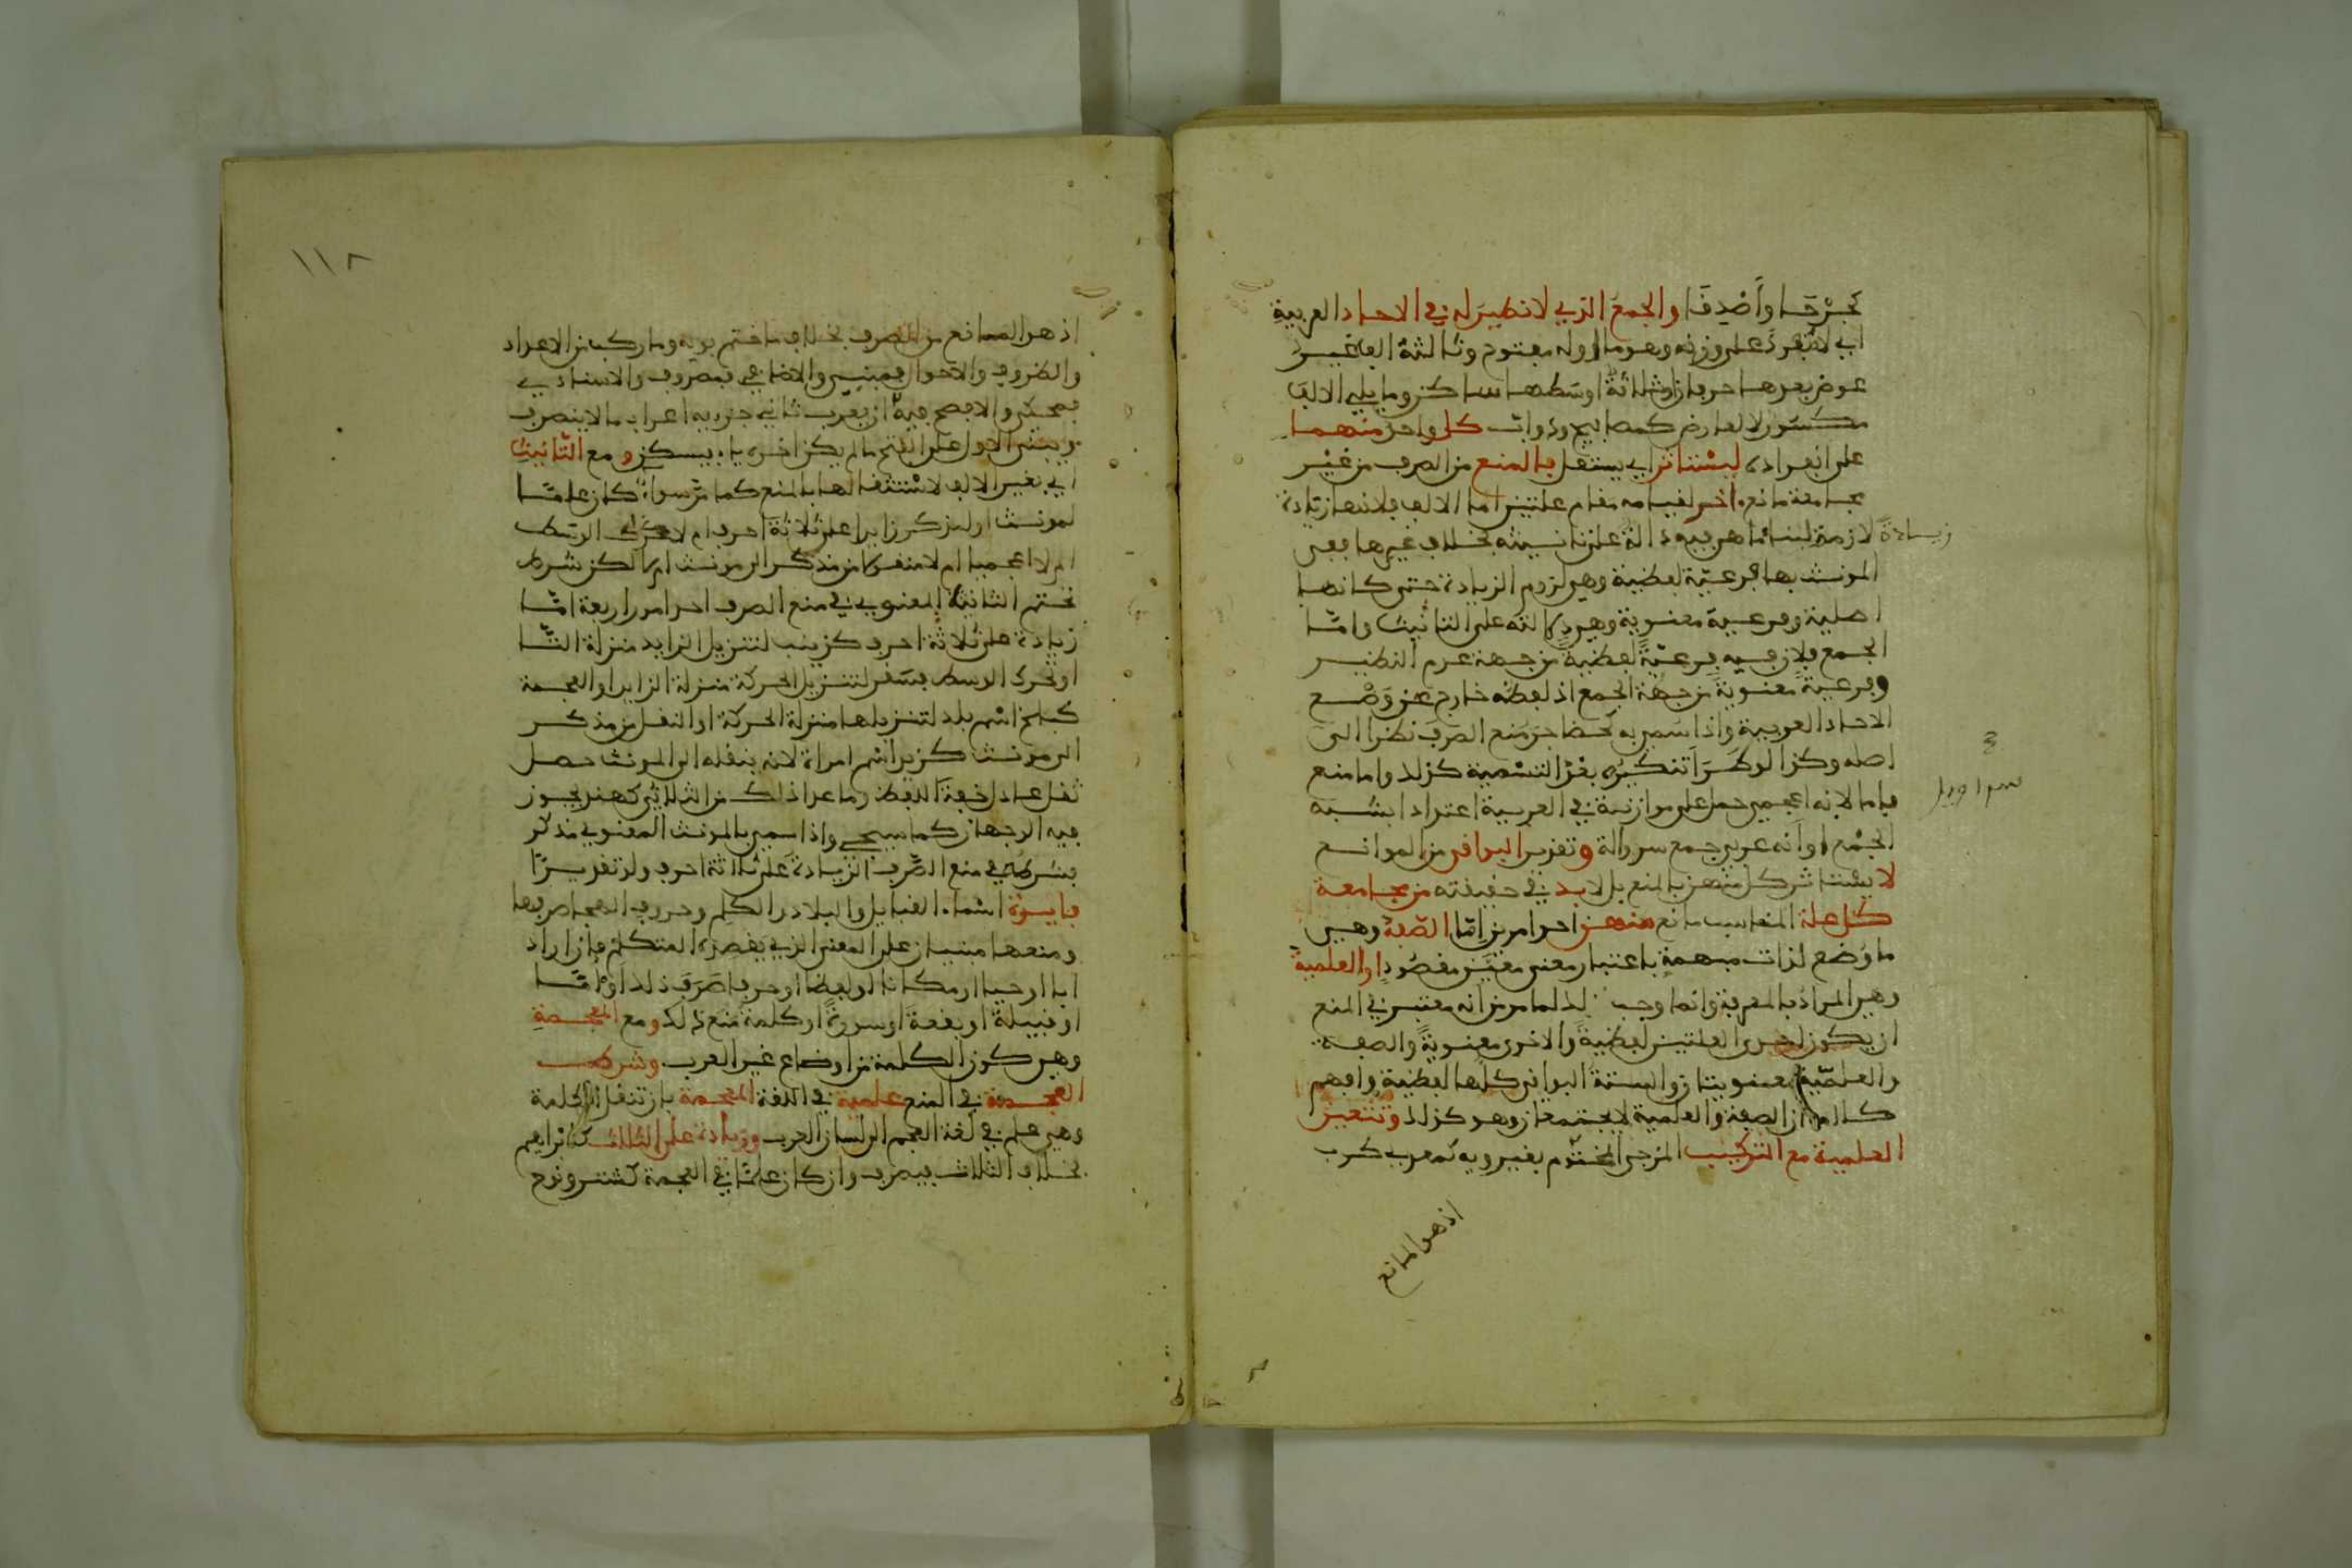 كجرحا وأصدقا والجمع الذي لا نظير له في الاحاد العربية
اي لا مفرد على وزنه وهو ما اوله مفتوح وثالثه الف غير
عوض بعدها حرفان او ثلاثة اوسطها ساكن وما يلي الالف
مكسور لا لعارض كمصابيح ودواب كل واحد منهما
على انفراده ليستاثر اي يستقل بالمنع من الصرف من غير
مجامعة مانع اخر لقيامه مقام علتين اما الالف فلانها زيادة
زيادة
لازمة لبناء ما هي فيه دالة على تانيثه بخلاف غيرها ففي
المونث بها فرعية لفظية وهي لزوم الزيادة حتى كانها
اصلية وفرعية معنوية وهي دلالته على التانيث واما
الجمع فلان فيه فرعية لفظية من جهة عدم النظير
وفرعية معنوية من جهة الجمع اذ لفظه خارج عن وضع
الاحاد العربية واذا سمي به كحضاجر منع الصرف نظرا الى
اصله وكذا لو طرا تنكيره بعد التسمية كذلك واما منع
سراويل
فاما لانه اعجمي حمل على موازنه في العربية اعتدادا بشبه
الجمع او انه عربي جمع سروالة وتقديرا البواقي من الموانع
لا يستاثر كل منهن بالمنع بل لا بد في حقيقته من مجامعة
كل علة المناسب مانع منهن احد امرين اما الصفة وهي
ما وضع لذات مبهمة باعتبار معنى معين مقصود او العلمية
وهي المراد بالمعرفة وانما وجب ذلك لما مر من انه معتبر في المنع
ان يكون احدى العلتين لفظية والاخرى معنوية والصفة
والعلمية معنويتان والستة البواقي كلها لفظية وافهم
كلامه ان الصفة والعلمية لا يجتمعان وهو كذلك وتتعين
العلمية مع التركيب المزجي المختوم بغير ويه كمعدي كرب
اذ هو المانع
١١٨
اذ هو المانع من الصرف بخلاف ما ختم بويه وما ركب من الاعداد
والظروف والاحوال فمبني والاضافي فمصروف والاسنادي
فمحكي والافصح فيه ان يعرب ثاني جزئيه اعراب ما لا ينصرف
ويبنى الاول على الفتح ما لم يكن اخره ياء فيسكن ومع التانيث
اي بغير الالف لاستقلالها بالمنع كما مر سواء كان علما
لمونث او لمذكر زايدا على ثلاثة احرف ام لا محرك الوسط
ام لا اعجميا ام لا منقولا من مذكر الى مونث ام لا لكن شرط
تحتم التانيث المعنوي في منع الصرف احد امور اربعة اما
زيادة على ثلاثة احرف كزينب لتنزيل الزايد منزلة التا
او تحرك الوسط كسقر لتنزيل الحركة منزلة الزايد او العجمة
كبلخ اسم بلد لتنزيلها منزلة الحركة او النقل من مذكر
الى مونث كزيد اسم امراة لانه بنقله الى المونث حصل
ثقل عادل خفة اللفظ وما عدا ذلك من الثلاثي كهند يجوز
فيه الوجهان كما سيجي واذا سمي بالمونث المعنوي مذكر
فشرطه في منع الصرف الزيادة على ثلاثة احرف ولو تقديرا
فايدة اسماء القبايل والبلاد والكلم وحروف الهجا صرفها
ومنعها مبنيان على المعنى الذي يقصده المتكلم فان اراد
ابا او حيا او مكانا او لفظا او حرفا صرف ذلك او اما
او قبيلة او بقعة او سورة او كلمة منع ذلك ومع العجمة
وهي كون الكلمة من اوضاع غير العرب وشرط
العجمة في المنع علمية في اللغة العجمة بان تنقل الكلمة
وهي علم في لغة العجم الى لسان العرب وزيادة على الثلاث كابراهيم
بخلاف الثلاث فيصرف وان كان علما في العجمة كشتر ونوح